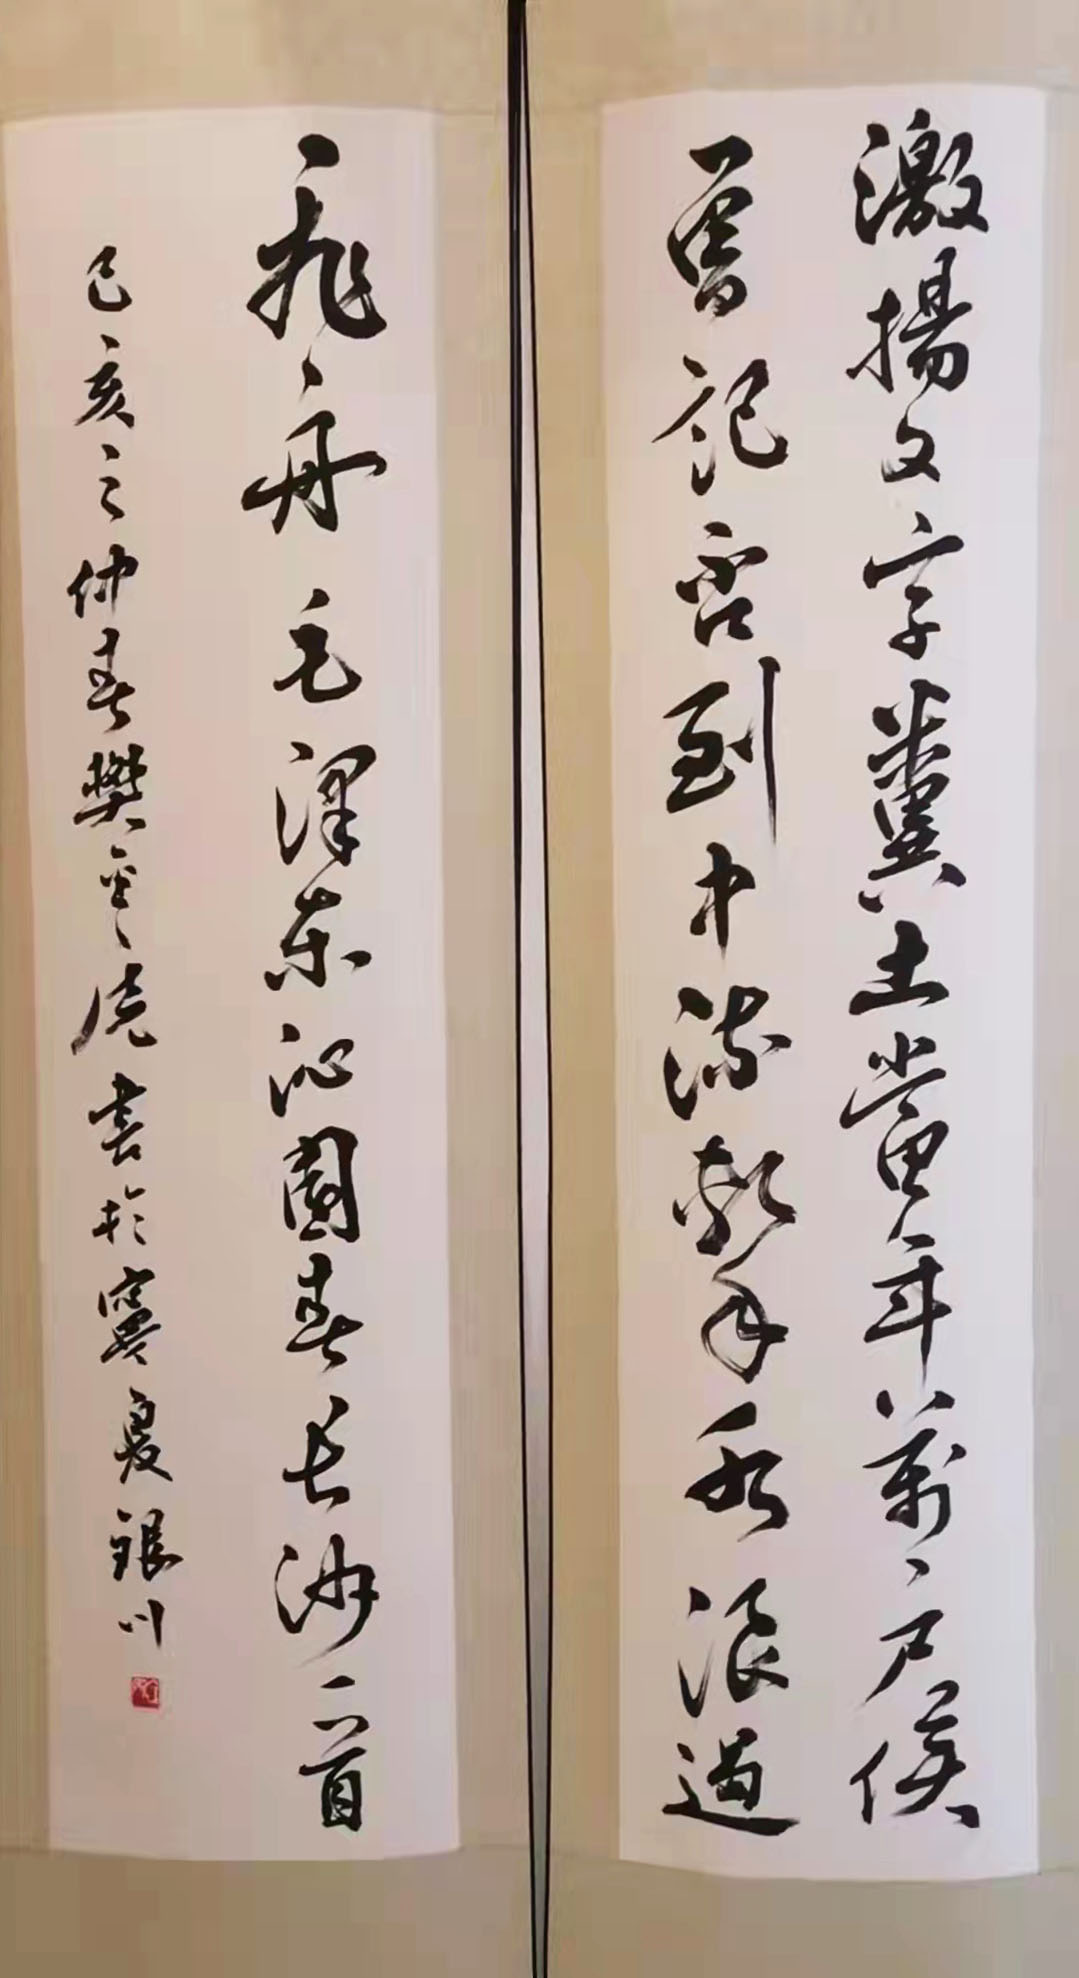 激揚文字糞土當年萬户侯
曾記否到中流擊水浪遏
飛舟毛澤東沁園春長沙一首
己亥之仲春樊書於寧夏銀川